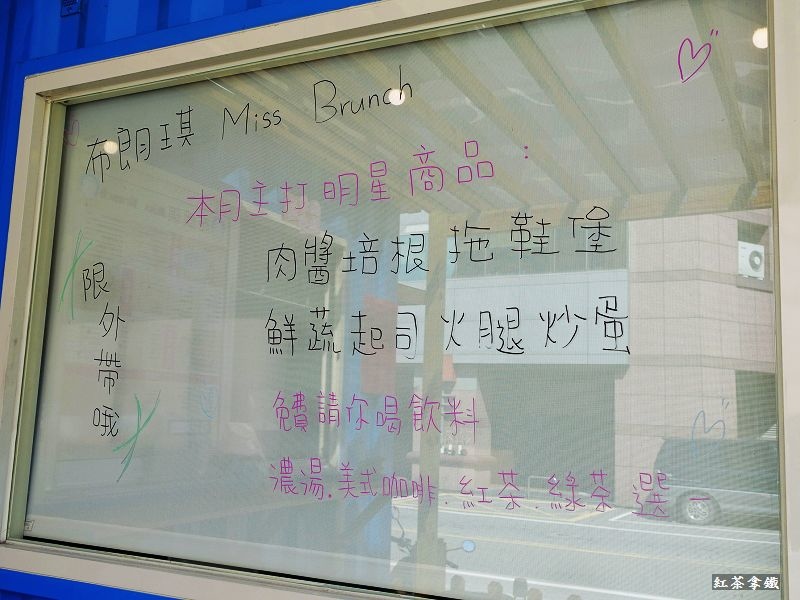 布朗琪 Miss Brunch
本月主打明星商品：
肉醬培根拖鞋堡
鮮蔬起司火腿炒蛋
免費請你喝飲料
濃湯.美式咖啡.紅茶.綠茶 選一
限外帶哦
紅茶拿鐵